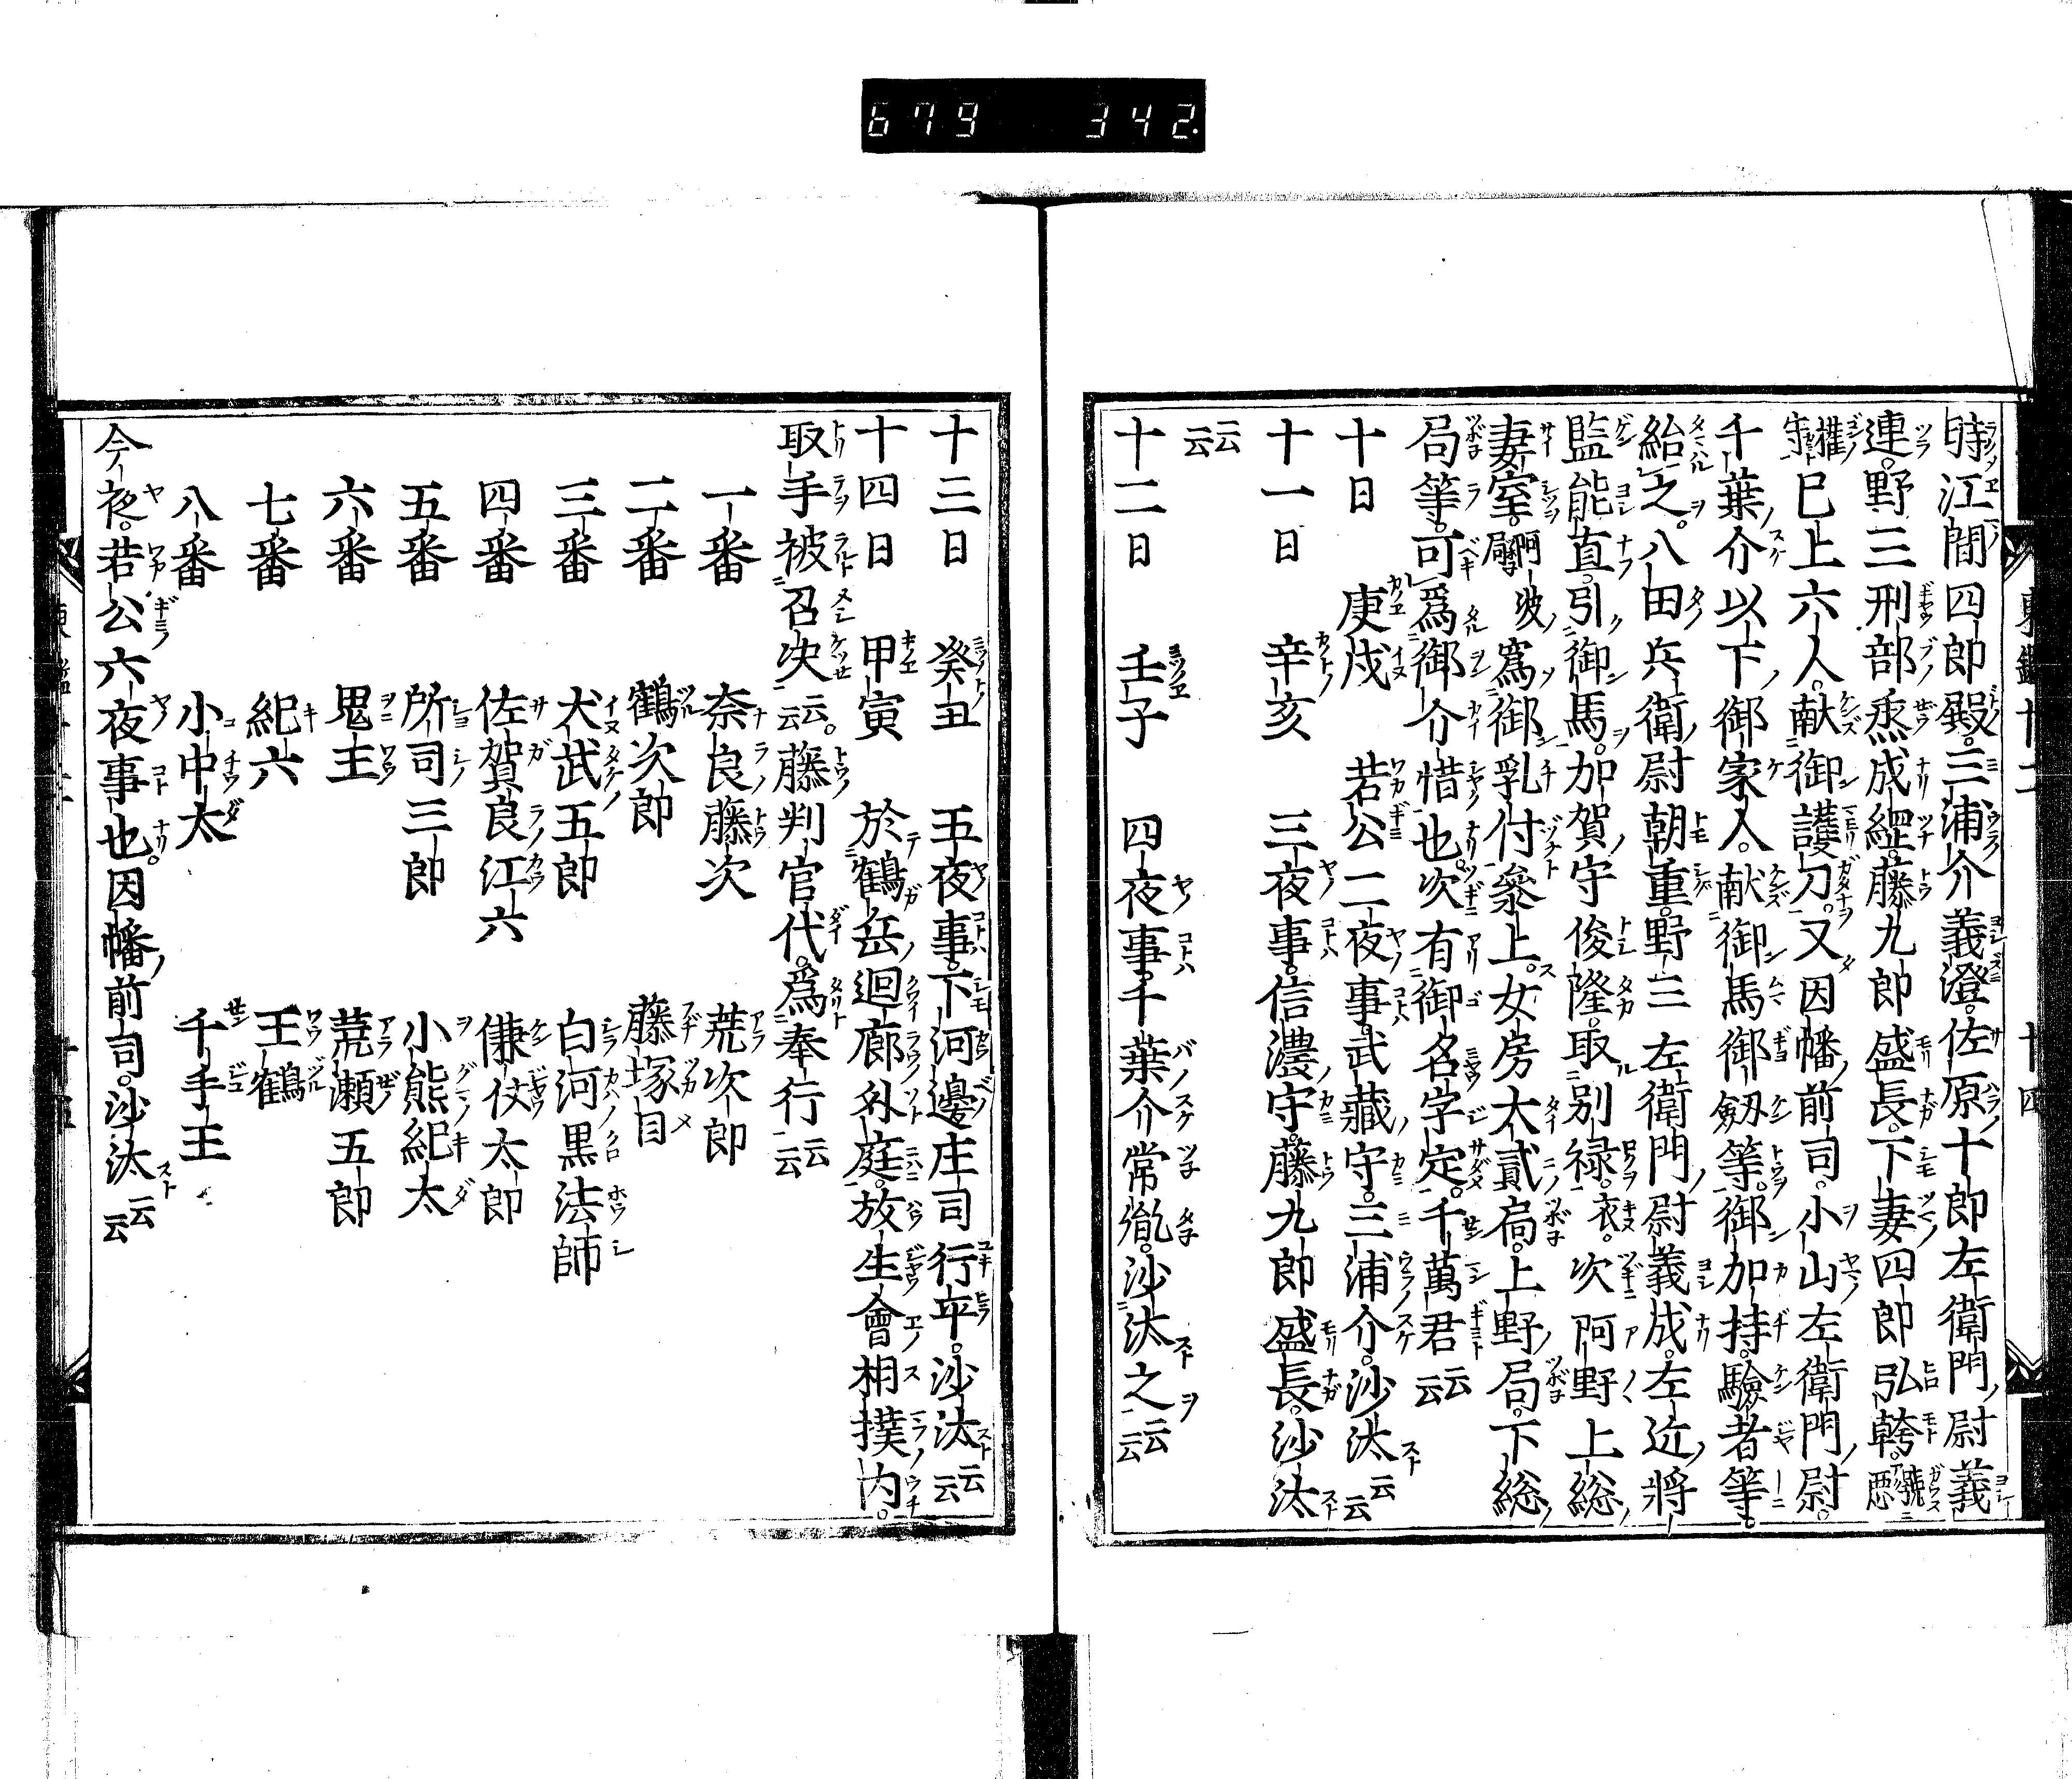 679 342.
時江間四郎殿。三浦介義澄。佐原十郎左衛門尉義
連。野三刑部烝成綱。藤九郎盛長。下妻四郎弘幹。號悪
權守已上六人。献御護刀。又因幡前司。小山左衛門尉。
千葉介以下御家人。献御馬御劔等。御加持。驗者等。
給之。八田兵衛尉朝重。野三左衛門尉義成。左近將
監能直。引御馬。加賀守俊隆。取別禄。衣。次阿野上総
妻室。阿波局爲御乳付參上。女房大貳局。上野局。下総
局等。可爲御介惜也。次有御名字定。千萬君云云
十日　庚戌　若公二夜事。武藏守。三浦介。沙汰云云
十一日　辛亥　三夜事。信濃守。藤九郎盛長。沙汰
云云
十二日　壬子　四夜事。千葉介常胤。沙汰之云云
十三日　癸丑　五夜事。下河邊庄司行平。沙汰云云
十四日　甲寅　於鶴岳廻廊外庭。放生會相撲内。
取手被召决云云。藤判官代。爲奉行云云
一番　奈良藤次　荒次郎
二番　鶴次郎　藤塚目
三番　犬武五郎　白河黒法師
四番　佐賀良江六　傔仗太郎
五番　所司三郎　小熊紀太
六番　鬼王　荒瀬五郎
七番　紀六　王鶴
八番　小中太　千手王
今夜。若公六夜事也。因幡前司。沙汰云云